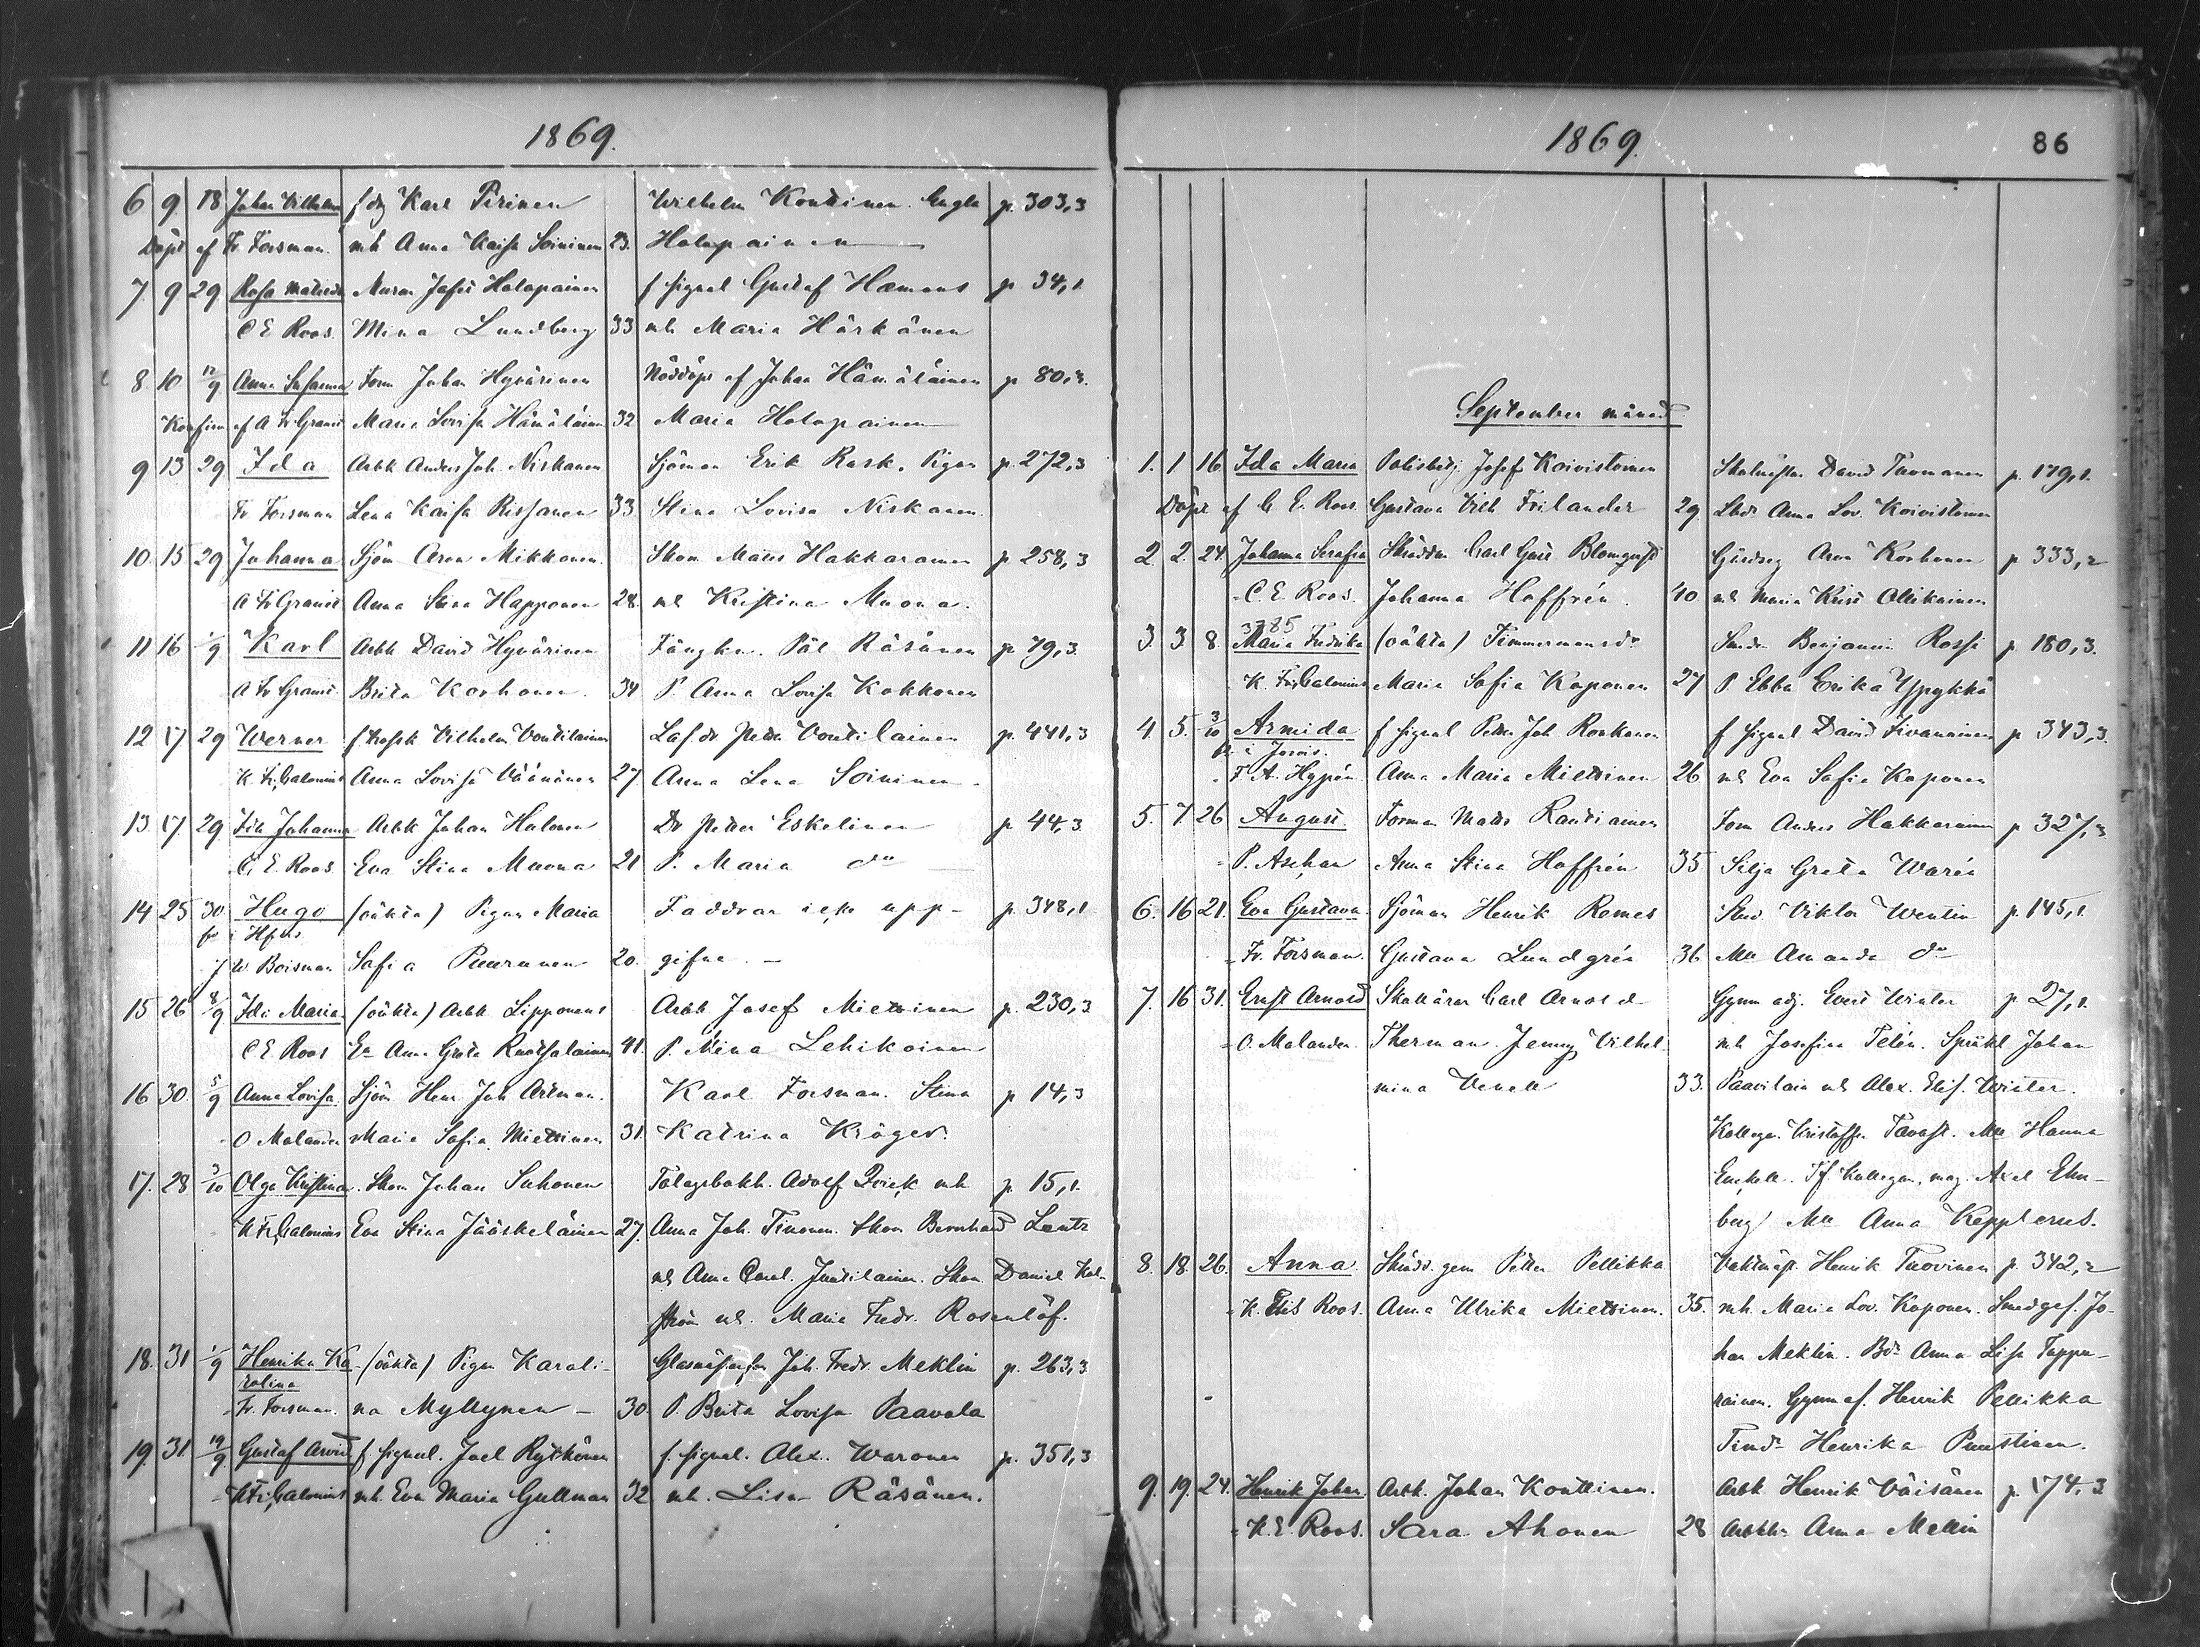 1869.
6 9 18 Johan Vilhelm f dg Karl Pirinen Wilhelm Konttinen. Engla p. 303,3
Döpt af Fr Forsman. mh Anna Kaisa Soininen 23. Holopainen
7. 9 29 Rosa Matilda Muraren Josef Holopainen f signal Gustaf Hamans p. 34,1.
C E Roos. Mina Lundberg 33 mh Maria Härkönen
8 10 12/9 Anna Susanna Form Johan Hyvärinen Nöddöpt af Johan Hämäläinen p. 80,3.
Konfirm af A Fr Granit Maria Lovisa Hämäläinen 32 Maria Holopainen
9 13 29 Ida Arbk Anders Joh. Niskanen Sjöman Erik Rask. Pigan p. 272,3
Fr Forsman Lena Kaisa Rissanen 33 Stina Lovisa Niskanen.
10. 15 29 Johanna Sjöm Aron Mikkonen. Skom Matts Hakkarainen p. 258,3
A Fr Granit Anna Stina Happonen 28. mh Kristina Muona.
11 16 1/9 Karl Arbk David Hyvärinen Fångkn. Pål Räsänen p. 79,3.
A Fr Granit. Brita Korhonen. 34 P. Anna Lovisa Kokkonen
12 17 29 Werner Vilhelm Voutilainen Petter Voutilainen p. 441,3
K Fr. Calonius Anna Lovisa Väänänen 27. Anna Lena Soininen.
13. 17 29 Ida Johanna Arbk Johan Halonen Dr Petter Eskelinen p. 44,3
C. E. Roos. Eva Stina Muona 21 P. Maria do
14 25 30 Hugo (oäkta) Pigan Maria Faddrar icke upp- p. 348,1
i Hfors
W Boisman Sofia Puurunen 20. gifne. -
15 26 8/9 Ida Maria (oäkta) Arbk Lipponens Arbk Josef Miettinen p. 230,3
C E Roos Ea Anna Greta Ruotsalainen 41. P. Mina Lehikoinen
16 30 5/9 Anna Lovisa. Sjöm Henr Joh Artman. Karl Forsman. Stina p. 14,3
O Malander Maria Sofia Miettinen 31. Katrina Kröger.
17. 28 3/10 Olga Kristina. Skom Johan Suhonen Adolf Zvick mh p. 15,1.
K Fr. Calonius Eva Stina Jääskeläinen 27. Anna Joh. Timonen. Skom Bernhard Lentz
mh Anna Carol. Juntilainen. Skom Daniel
ström mh. Maria Fredr. Rosenlöf.
18. 31 1/9 Henrika Ka- (oäkta) Pigan Karoli- Glasmästaren Joh. Fredr. Meklin p. 263,3
rolina
Fr. Forsman. na Myllynen - 30 P. Brita Lovisa Paavola
19. 31 19/9 Gustaf Arvid f signal. Joel Rytkönen f. signal. Alex. Waronen p. 351,3
K Fr. Calonius mh. Eva Maria Gullman 32 mh. Lisa Räsänen.
1869.
86
September månad
1. 1 16 Ida Maria Polisbetj Josef Koivistoinen David Tavonanen p. 179,1.
Döpt af C. E. Roos. Gustava Vilh Frilander 29 Anna Lov. Koivistoinen
2 2. 24. Johanna Serafia Skräddar Carl Gust Blomqvist Aron Korhonen p. 333,2
C. E. Roos. Johanna Hoffrén. 40 mh Maria Krist Ollikainen
3785
3. 3 8. Maria Fredrika (oäkta) Timmermansdr Smedn Benjamin Rossi p. 180,3.
K. Fr. Calonius Maria Sofia Koponen 27 P Ebba Erika Ypykkä
4. 5. 3/10 Armida f signal Petter Joh Ronkanen f signal David Iivanainen p 343,3.
i Jorois.
F. A. Hypén Anna Maria Miettinen 26 mh Eva Sofia Koponen
5. 7 26 August. Forman Matts Rautiainen Form Anders Hakkarainen p 327,3
P. Aschan Anna Stina Hoffrén 35 Silja Greta Warén
6. 16 21. Eva Gustava Sjöman Henrik Romes Stud. Viktor Wentin p. 145,1.
Fr. Forsman. Gustava Lundgrén 36 Mll Amanda do
7. 16 31. Ernst Arnold Carl Arnold Gymn adj. Evert Winter p. 27,1.
O. Malander Therman. Jenny Vilhel- mh Josefina Telén. Johan
mina Venell 33. mh Alex. Elis. Winter.
Kollegan. Kristoffer Tavast. Mll Hanna
Enckell. Tf Kollegan, mag. Axel Ehn-
berg Mll Anna Kepplerus.
8. 18. 26. Anna gesn Petter Pellikka Vaktmäst. Henrik Tuovinen p. 342,2
K. Elis Roos. Anna Ulrika Miettinen. 35. mh. Maria Lov. Koponen. Smedges. Jo-
han Meklin. Anna Lisa Tappu-
rainen. Gymn el. Henrik Pellikka
Henrika Puustinen.
9. 19. 24. Henrik Johan Arbk. Johan Konttinen. Arbk Henrik Väisänen p. 174,3
K. E. Roos. Sara Ahonen 28 Anna Mellin